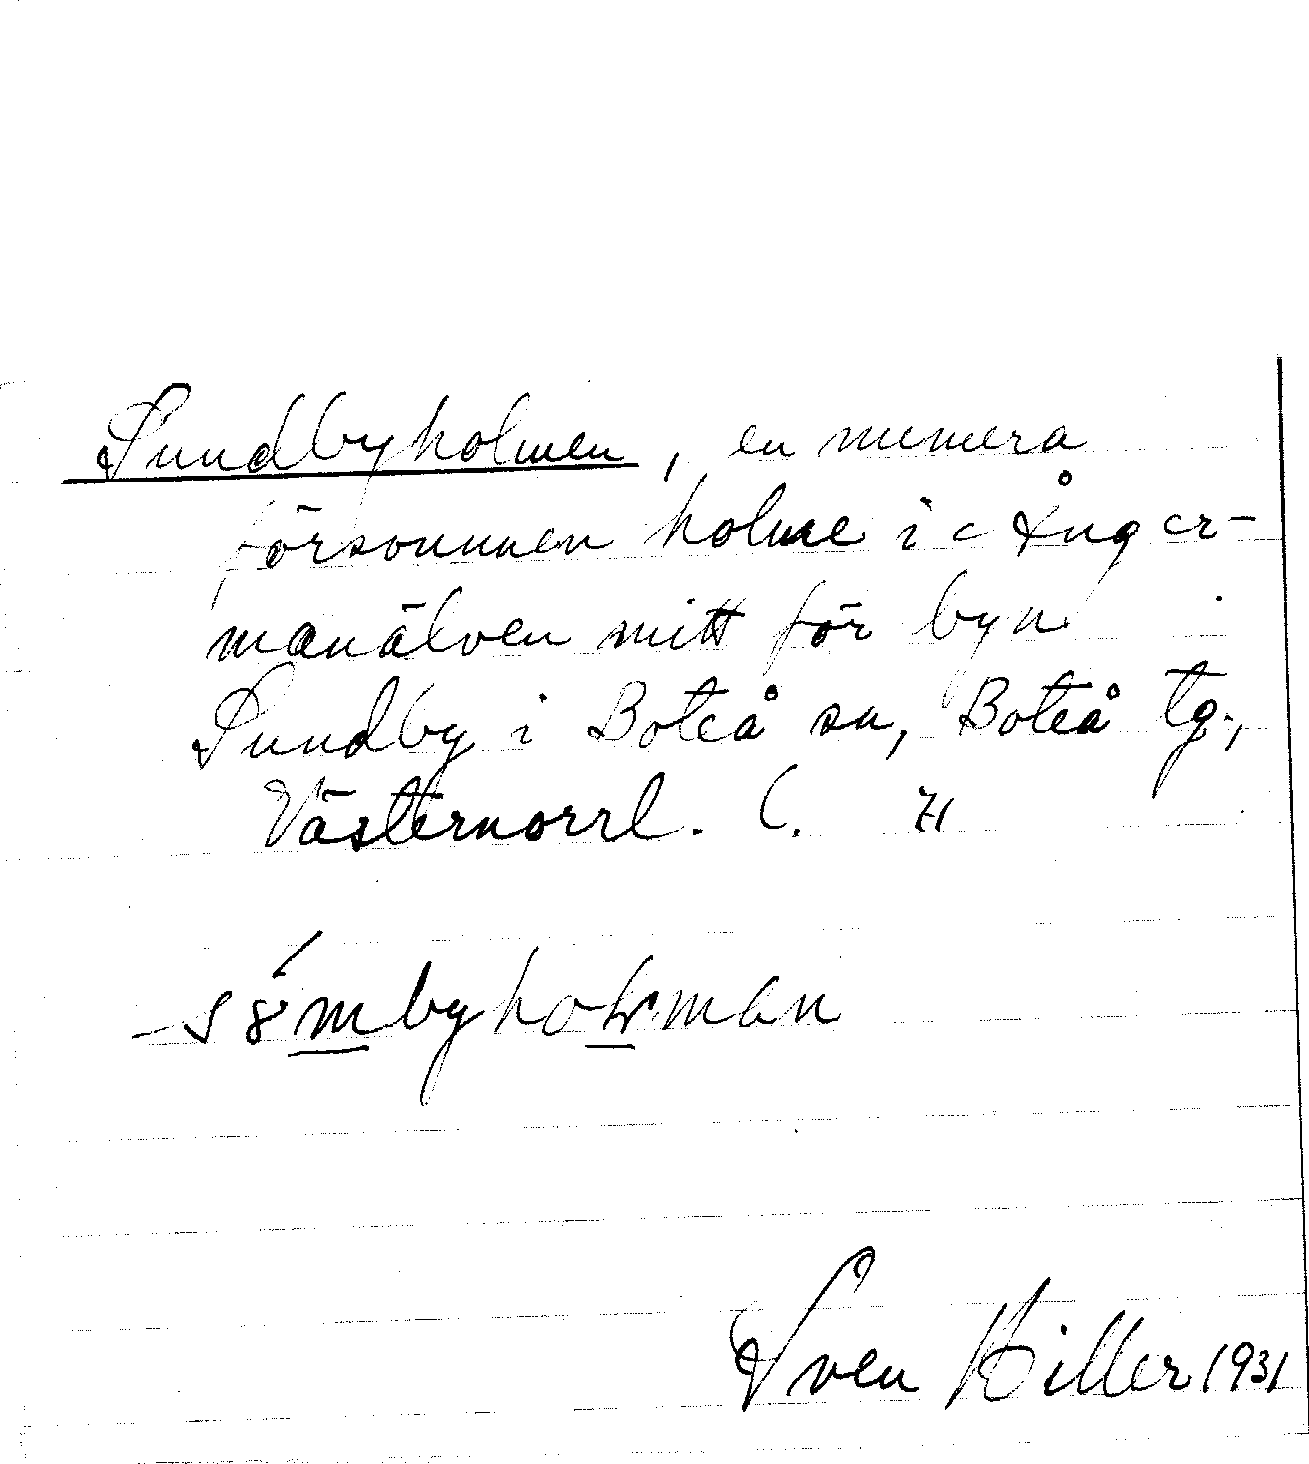 Sundbyholmen, en numera
försvunnen holme i Ånger-
manälven mitt för byn
Sundby i Boteå sn, Boteå tg.,
Västernorrl. l.
Sven Hiller 1931